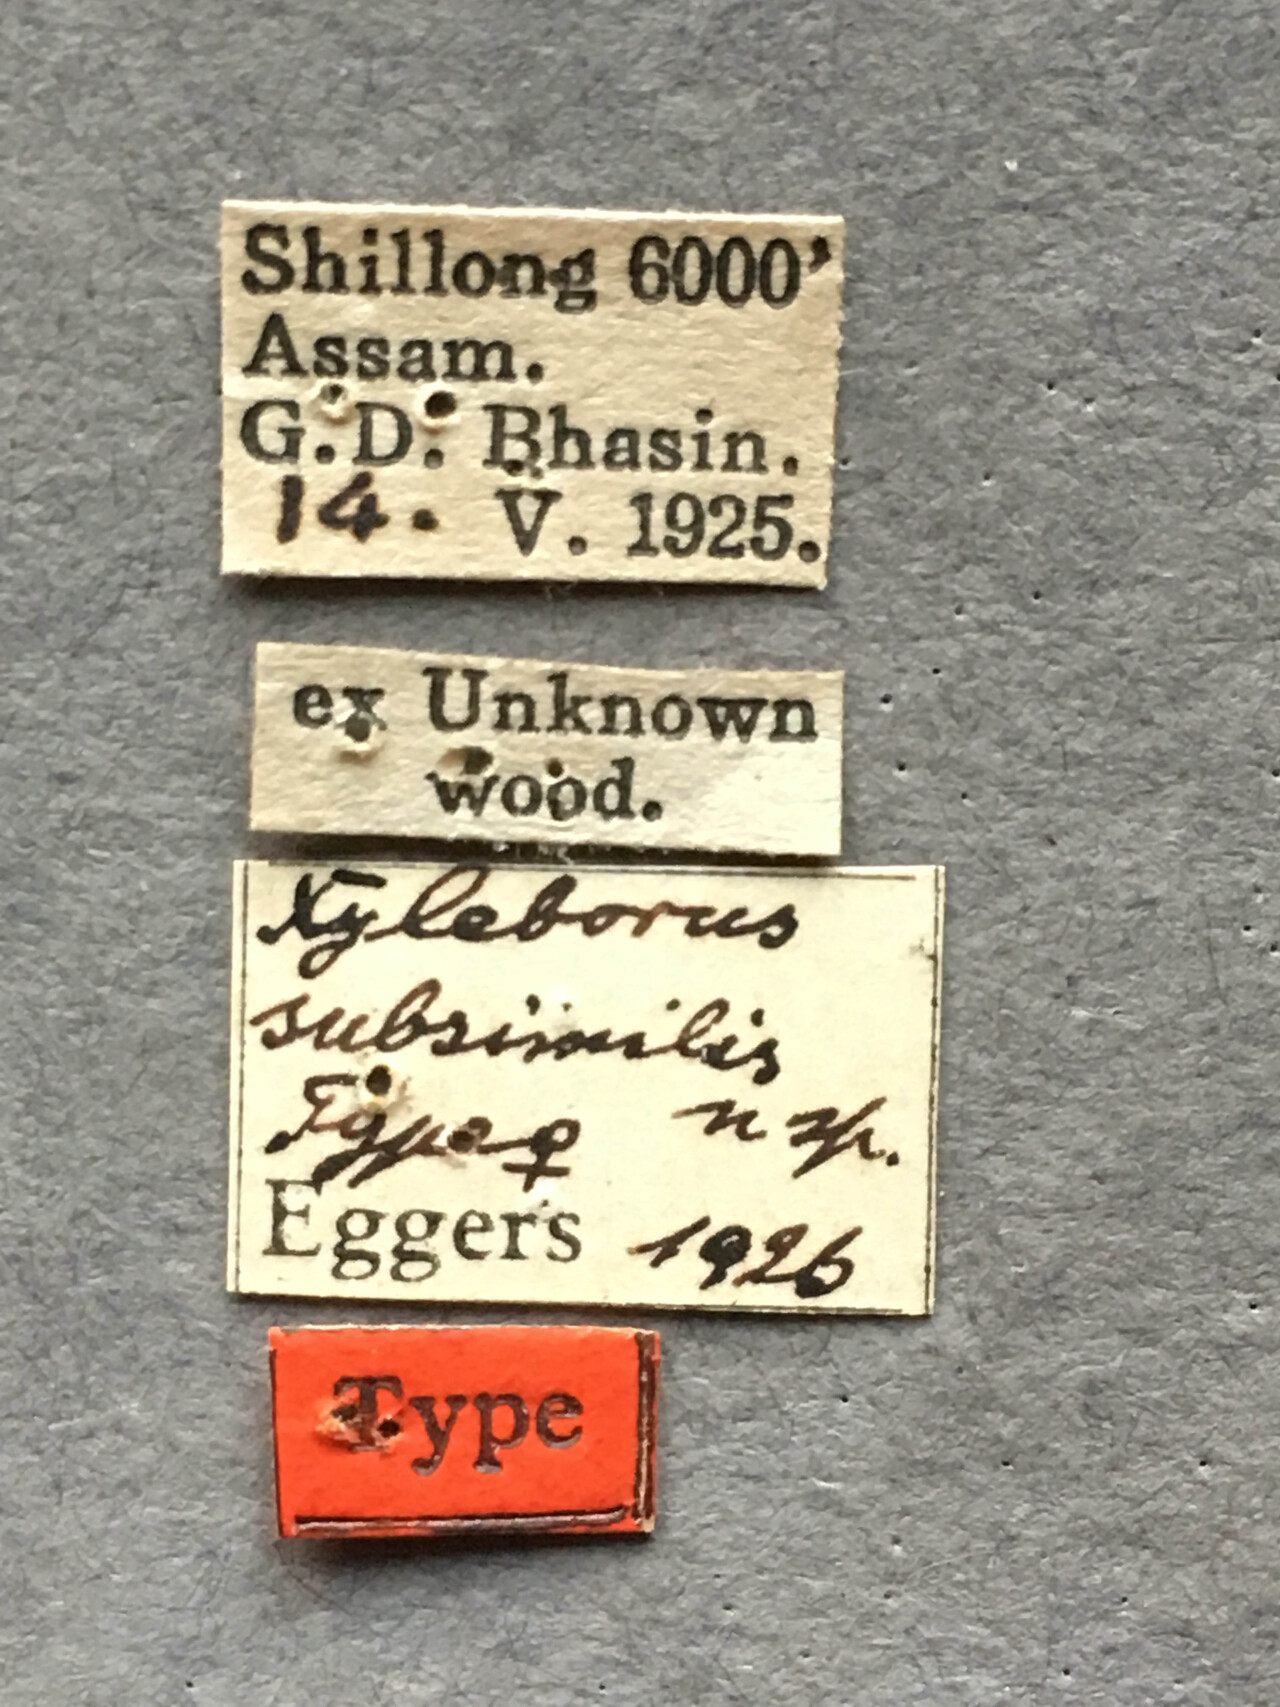 Shillong 6000'
Assam.
G.D. Bhasin.
14. V. 1925.
ex Unknown
wood.
Xyleborus
subsimilis
Type ♀ n sp.
Eggers 1926
Type